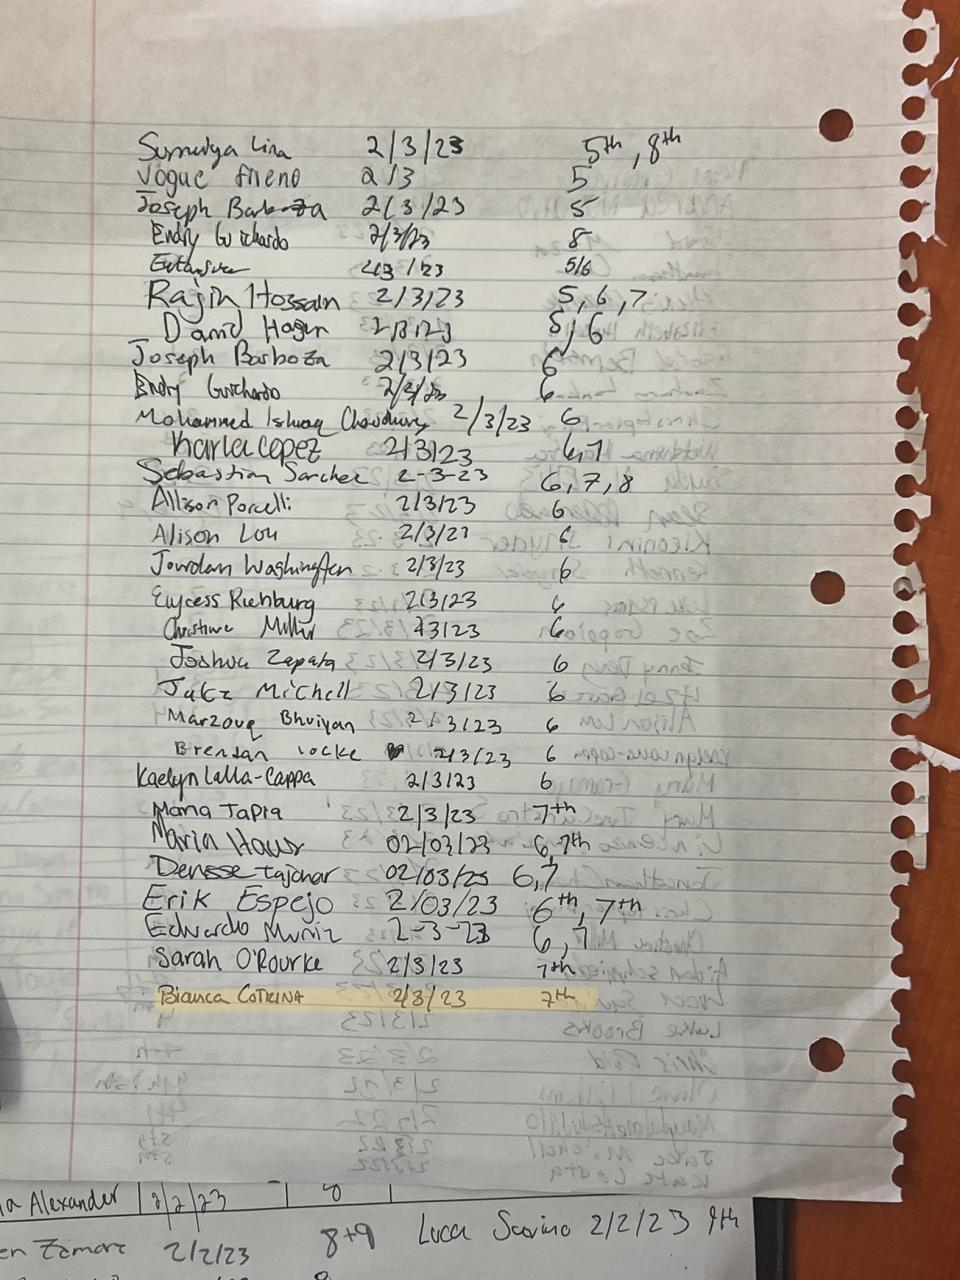 Sumaiya Lina 2/3/23 5th, 8th
Vogue 2/3 5
Joseph Barboza 2/3/23 5
Endry Guichardo 2/3/23 8
2/3/23 5/6
Rajin Hossain 2/3/23 5, 6, 7
David Hagen 2/3/23 5/6
Joseph Barboza 2/3/23 6
Endry Guichardo 2/3/23 6
Mohammed Ishaq Chowdhury 2/3/23 6
Karla Lopez 2/3/23 6,7
Sebastian Sanchez 2-3-23 6, 7, 8
Allison Porcelli 2/3/23 6
Alison Lou 2/3/23 6
Jourdan Washington 2/3/23 6
Richburg 2/3/23 6
Christine Miller 2/3/23 6
Joshua Zapata 2/3/23 6
Jake Mitchell 2/3/23 6
Marzouq Bhuiyan 2/3/23 6
Brendan Locke 2/3/23 6
Kaelyn Lalla-Cappa 2/3/23 6
Maria Tapia 2/3/23 7th
Maria 02/03/23 6,7th
Denisse 02/03/23 6,7
Erik Espejo 2/03/23 6th, 7th
Eduardo Muñiz 2-3-23 6,7
Sarah O'Rourke 2/3/23 7th
Bianca COTRINA 2/3/23 7th
Alexander 2/2/23 8
Zamora 2/2/23 8+9 Luca Savino 2/2/23 9th